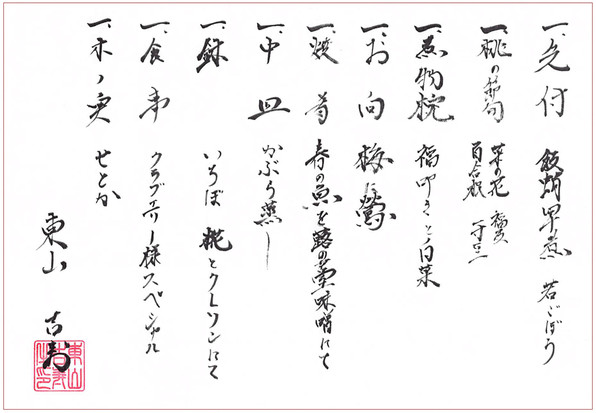 一、先付 飯蛸早煮 若ごぼう
一、桃の節句 菜の花 百合根 一寸豆
一、煮物椀 福叩きと白菜
一、お向 梅に鶯
一、焼肴 春の魚を蕗の薹味噌にて
一、中皿 かぶら蒸し
一、鉢 いちぼ 糀とクレソンにて
一、食事 クラブエリー様スペシャル
一、木ノ実 せとか
東山 吉寿